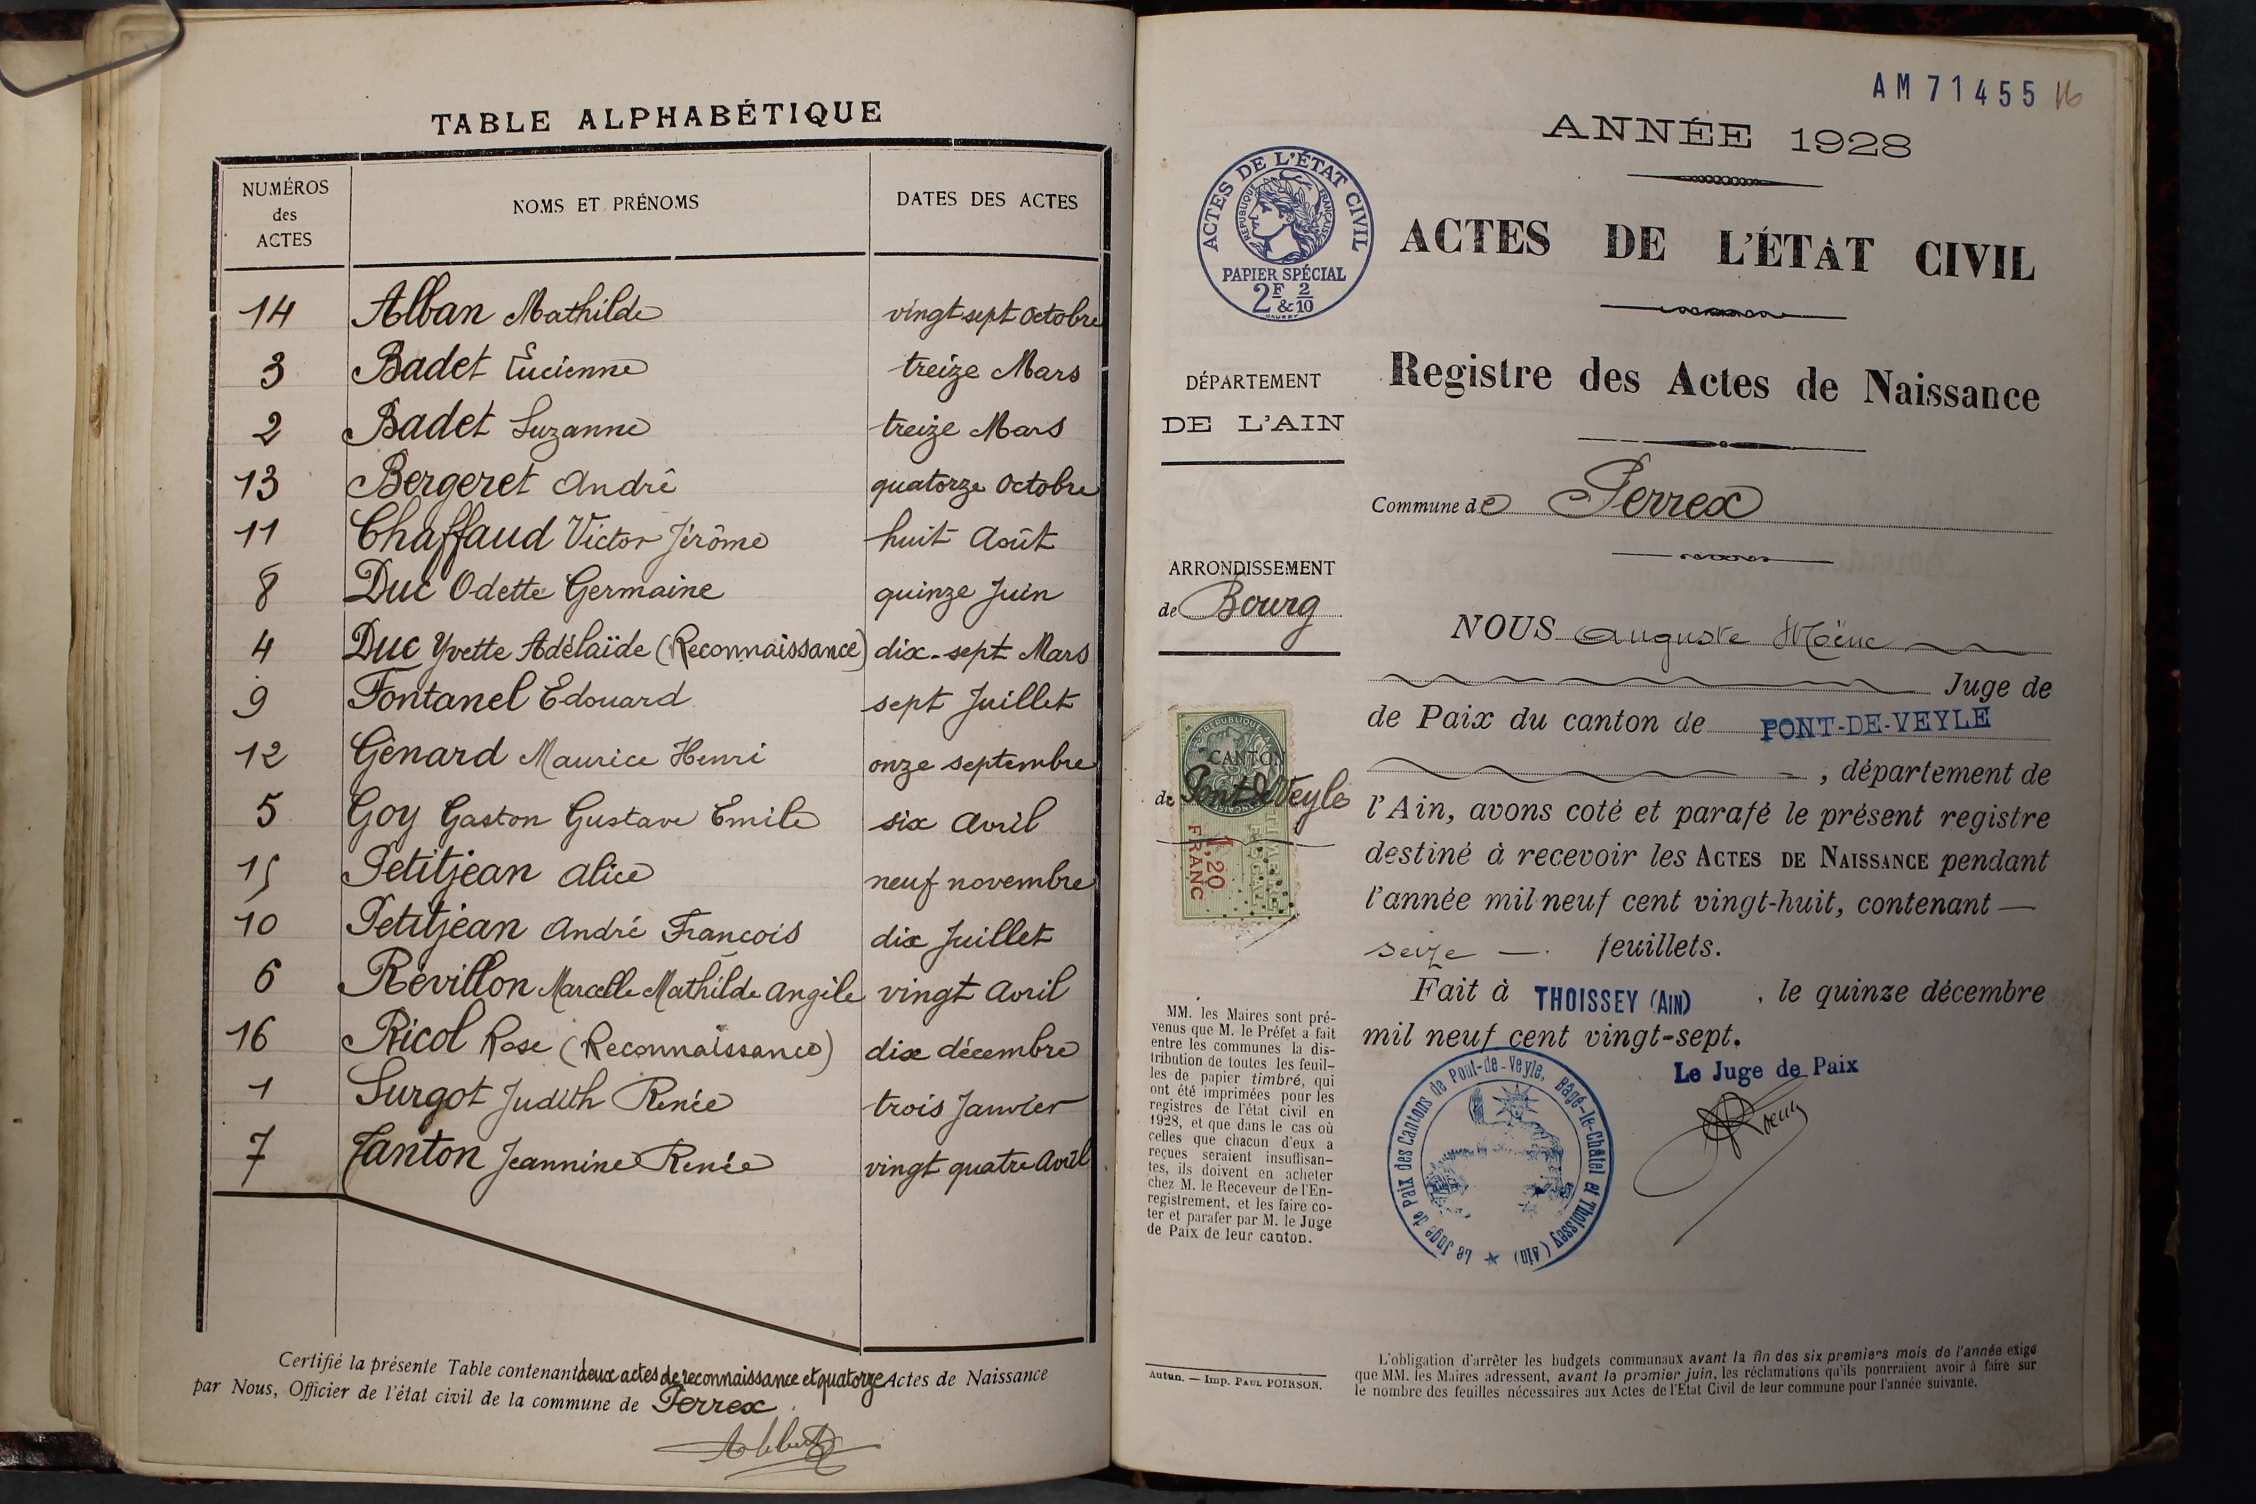 TABLE ALPHABÉTIQUE
NUMÉROS des ACTES NOMS ET PRÉNOMS DATES DES ACTES
14 Alban Mathilde vingt sept octobre
3 Badet Lucienne treize Mars
2 Badet Suzanne treize Mars
13 Bergeret André quatorze octobre
11 Chaffaud Victor Jérôme huit Août
8 Duc Odette Germaine quinze Juin
4 Duc Yvette Adélaïde (Reconnaissance) dix-sept Mars
9 Fontanel Edouard sept Juillet
12 Génard Maurice Henri onze septembre
5 Goy Gaston Gustave Emile six Avril
15 Petitjean Alice neuf novembre
10 Petitjean André François dix Juillet
6 Révillon Marcelle Mathilde Angèle vingt Avril
16 Ricol Rose (Reconnaissance) dix décembre
1 Surgot Judith Renée trois Janvier
7 Tanton Jeannine Renée vingt quatre Avril
Certifié la présente Table contenant deux actes de reconnaissance et quatorze Actes de Naissance
par Nous, Officier de l'état civil de la commune de Perrex
AM 71455 16
ANNÉE 1928
ACTES DE L'ÉTAT CIVIL
RÉPUBLIQUE FRANÇAISE
PAPIER SPÉCIAL
2F & 2/10
ACTES DE L'ÉTAT CIVIL
Registre des Actes de Naissance
DÉPARTEMENT
DE L'AIN
Commune de Perrex
ARRONDISSEMENT
de Bourg
CANTON
de Pont de Veyle
1,20
FRANC
NOUS Auguste
Juge de
de Paix du canton de PONT-DE-VEYLE
, département de
l'Ain, avons coté et parafé le présent registre
destiné à recevoir les ACTES DE NAISSANCE pendant
l'année mil neuf cent vingt-huit, contenant —
seize — feuillets.
Fait à THOISSEY (AIN), le quinze décembre
mil neuf cent vingt-sept.
Le Juge de Paix
Le Juge de Paix des Cantons de Pont-de-Veyle, Bâgé-le-Châtel et Thoissey (Ain)
MM. les Maires sont pré-
venus que M. le Préfet a fait
entre les communes la dis-
tribution de toutes les feuil-
les de papier timbré, qui
ont été imprimées pour les
registres de l'état civil en
1928, et que dans le cas où
celles que chacun d'eux a
reçues seraient insuffisan-
tes, ils doivent en acheter
chez M. le Receveur de l'En-
registrement, et les faire co-
ter et parafer par M. le Juge
de Paix de leur canton.
Autun. — Imp. PAUL POIRSON.
L'obligation d'arrêter les budgets communaux avant la fin des six premiers mois de l'année exige
que MM. les Maires adressent, avant le premier juin, les réclamations qu'ils pourraient avoir à faire sur
le nombre des feuilles nécessaires aux Actes de l'Etat Civil de leur commune pour l'année suivante.